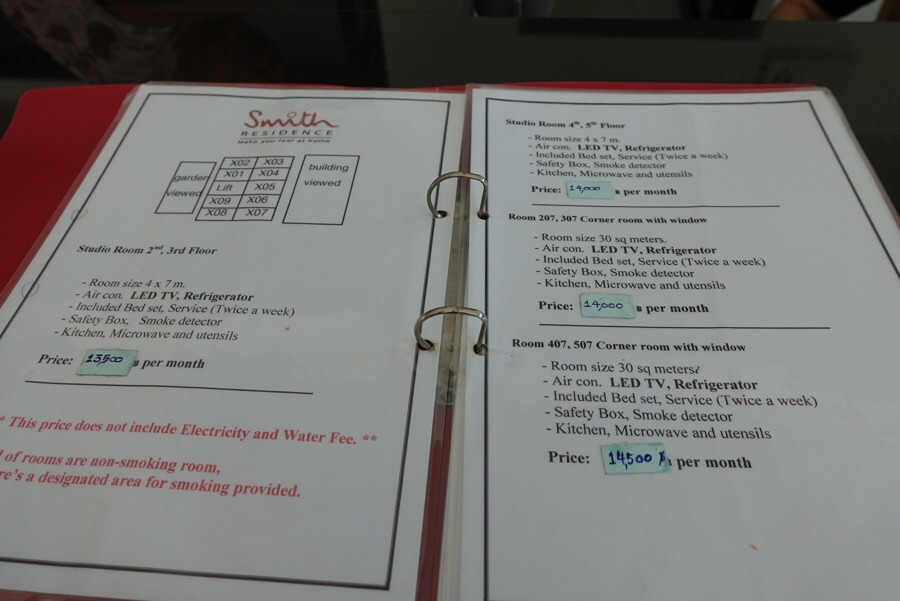 Smith
RESIDENCE
Make you feel at home
garden viewed
X02 X03
X01 X04
Lift X05
X09 X06
X08 X07
building viewed
Studio Room 2nd, 3rd Floor
- Room size 4 x 7 m.
- Air con. LED TV, Refrigerator
- Included Bed set, Service (Twice a week)
- Safety Box, Smoke detector
- Kitchen, Microwave and utensils
Price: 13,500 per month
* This price does not include Electricity and Water Fee. **
of rooms are non-smoking room,
designated area for smoking provided.
Studio Room 4th, 5th Floor
- Room size 4 x 7 m.
- Air con. LED TV, Refrigerator
- Included Bed set, Service (Twice a week)
- Safety Box, Smoke detector
- Kitchen, Microwave and utensils
Price: 14,000 per month
Room 207, 307 Corner room with window
- Room size 30 sq meters.
- Air con. LED TV, Refrigerator
- Included Bed set, Service (Twice a week)
- Safety Box, Smoke detector
- Kitchen, Microwave and utensils
Price: 14,000 per month
Room 407, 507 Corner room with window
- Room size 30 sq meters
- Air con. LED TV, Refrigerator
- Included Bed set, Service (Twice a week)
- Safety Box, Smoke detector
- Kitchen, Microwave and utensils
Price: 14,500 per month